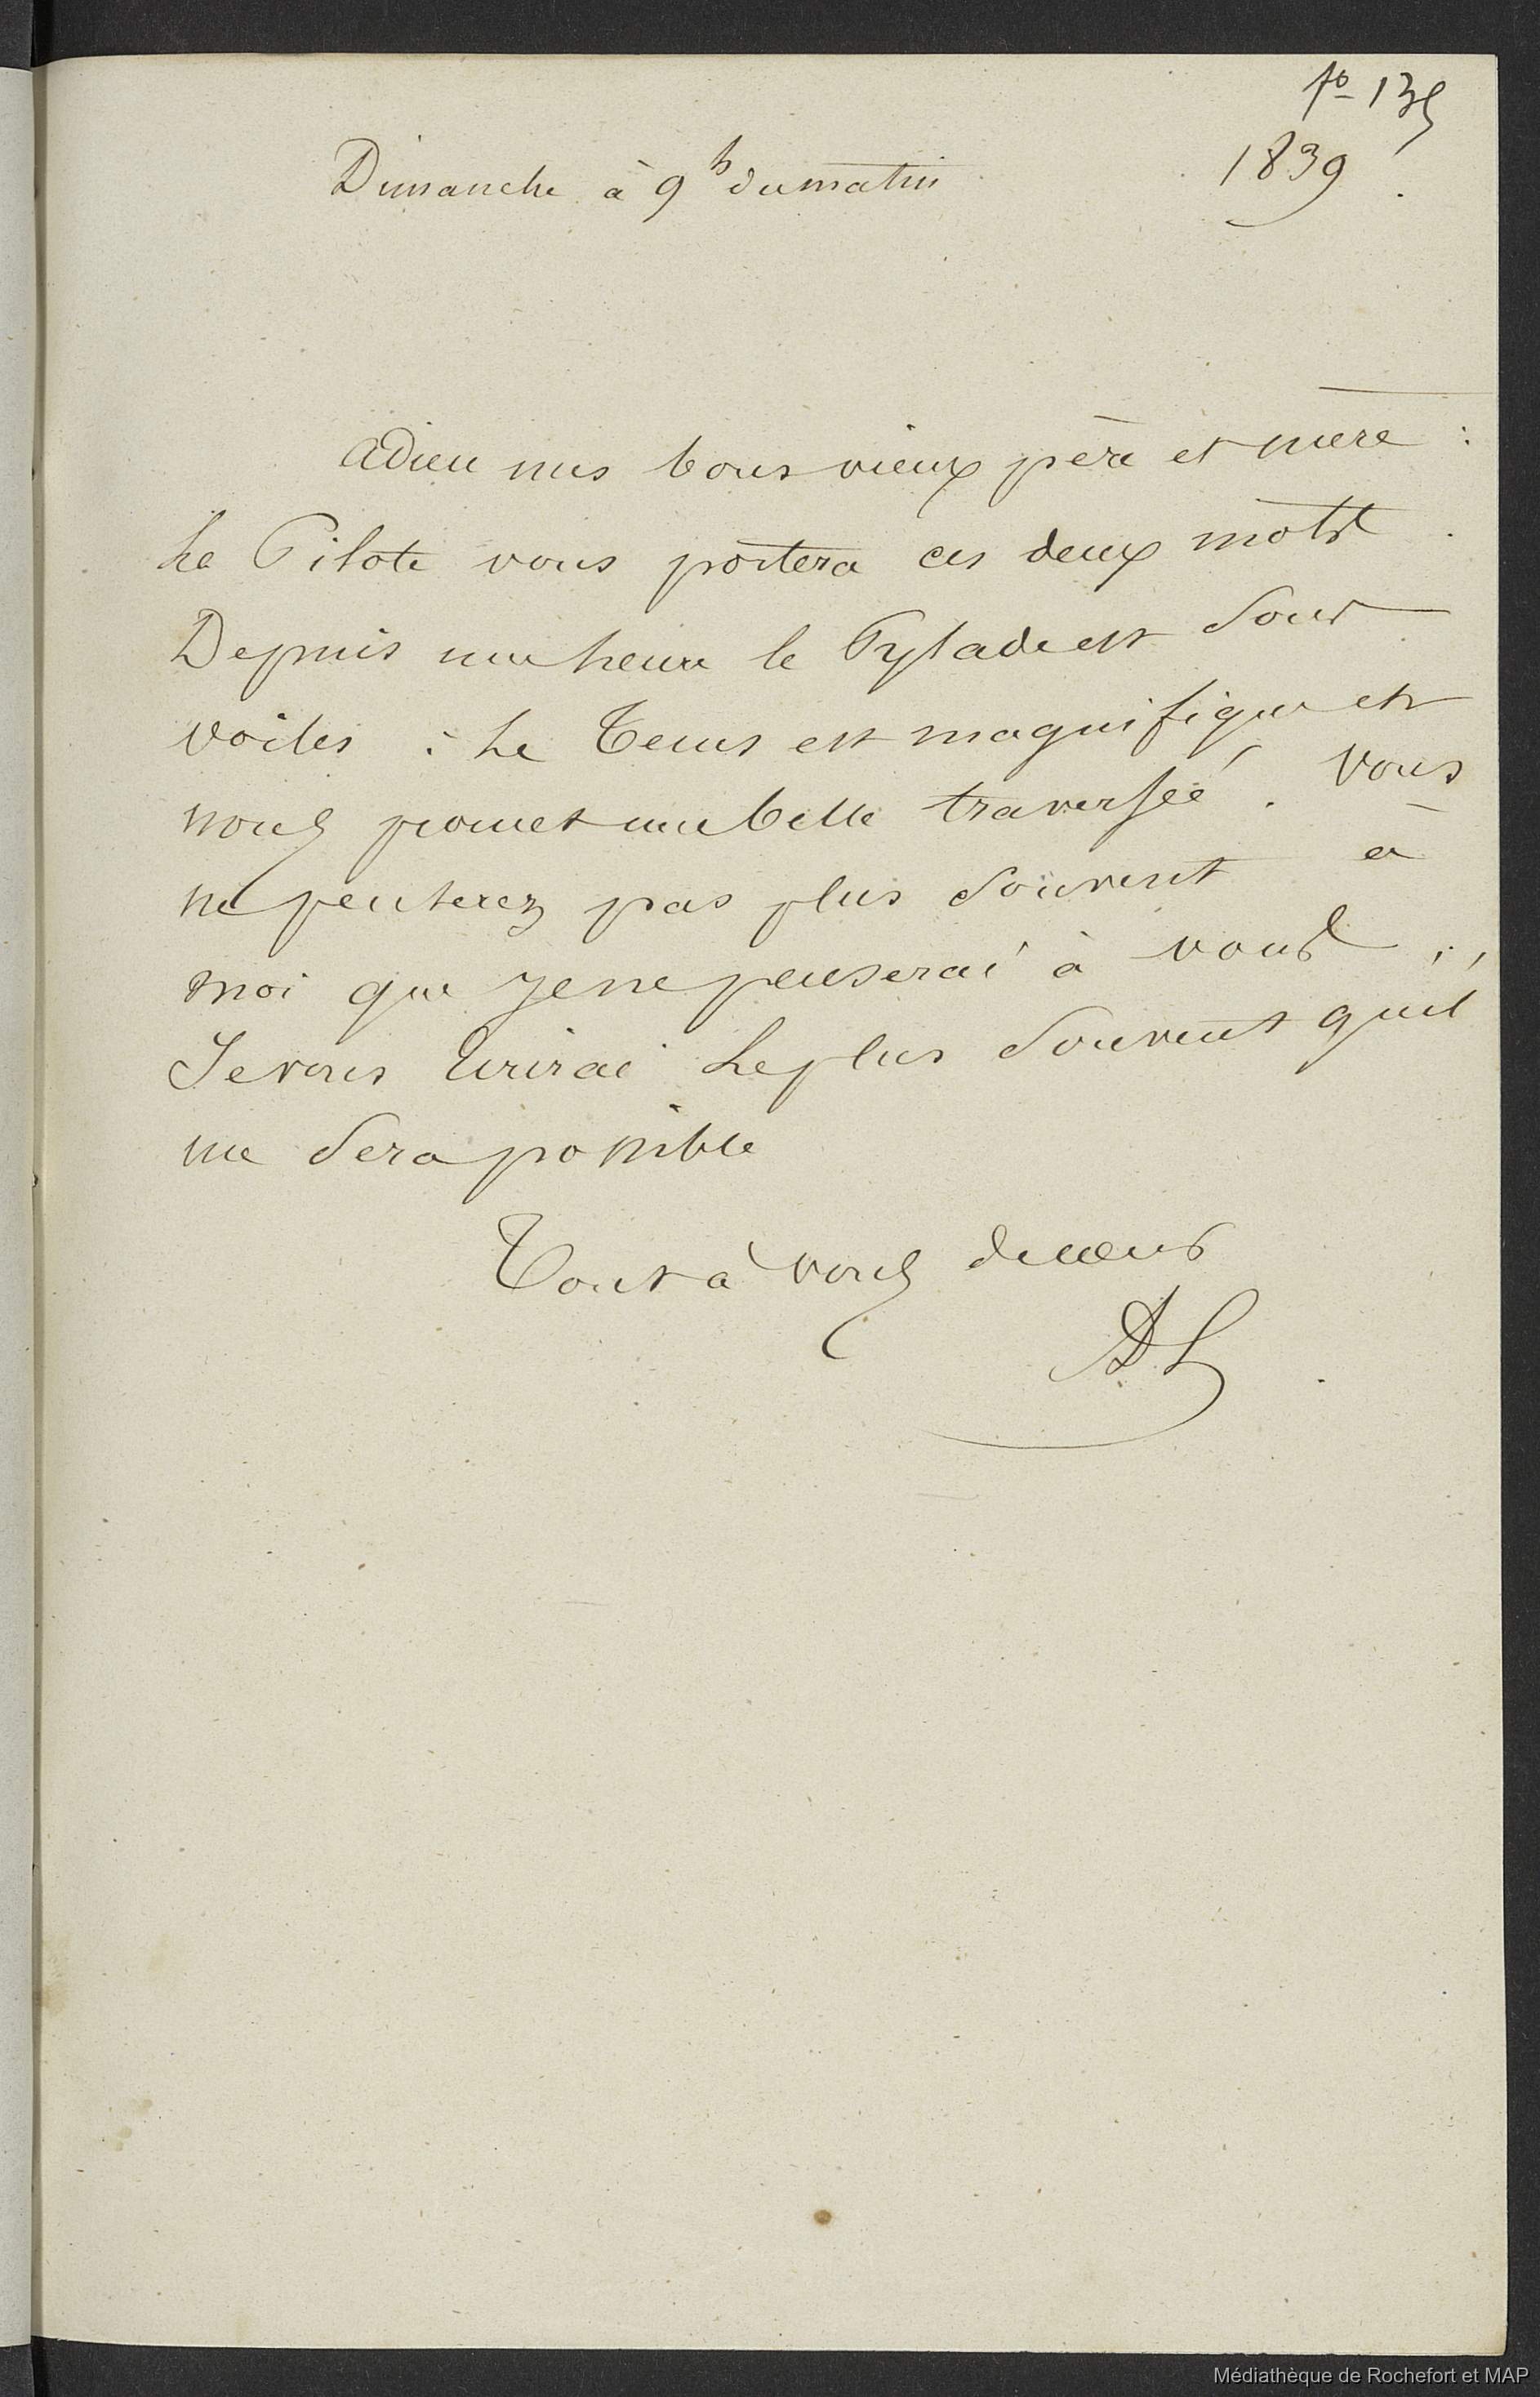 fo 135
1839
Dimanche à 9h du matin
Adieu mes bons vieux père et mère :
Le Pilote vous portera ces deux mots .
Depuis une heure le Pylade est sous
voiles : Le Tems est magnifique et
nous promet une belle traversée . Vous
ne penserez pas plus souvent à
moi que je ne penserai à vous ;
Je vous écrirai le plus souvent quil
me sera possible
Tout à vous de cœur
AL
Médiathèque de Rochefort et MAP